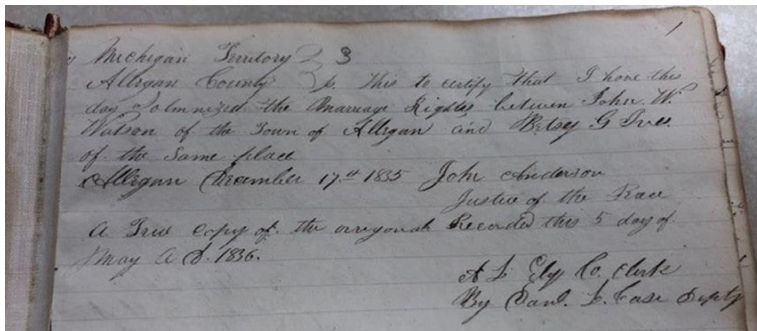 1
Michigan Territory } 3
Allegan County } ss. this to certify that I have this
day Solmnized the Marriage Rights betwen John W.
Watson of the Town of Allegan and Betsy G Ives
of the Same place
Allegan December 17th 1835 John Anderson
Justice of the Peace
A True Copy of the orrygonal Recorded this 5 day of
May A D. 1836.
A L Ely Co. Clerk
By Danl. L. Case Deputy